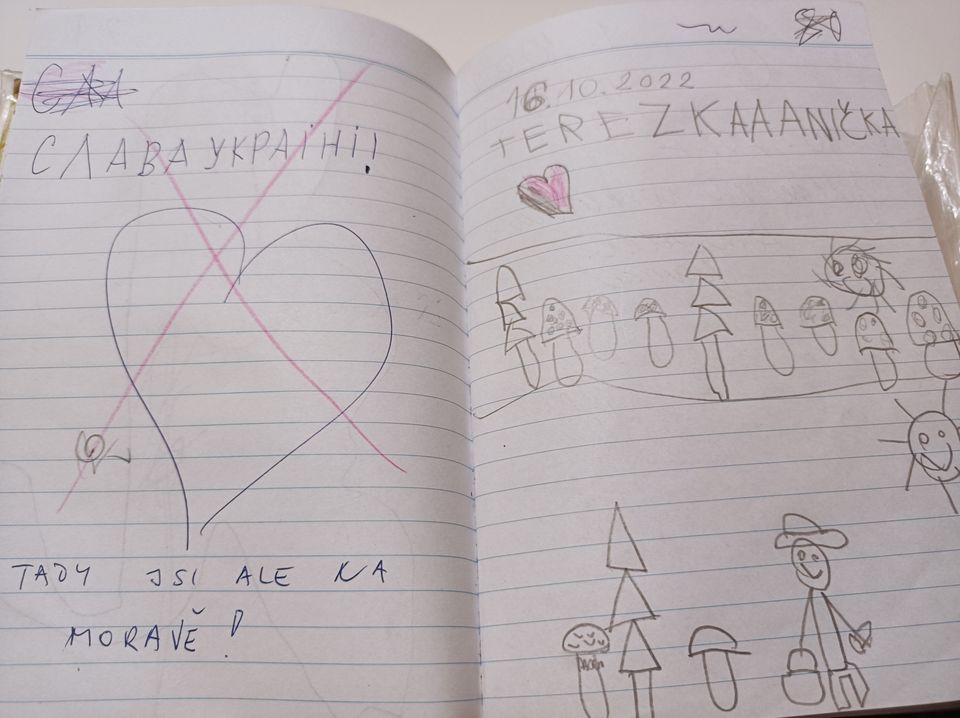 СЛАВА УКРАЇНІ!
TADY JSI ALE NA
MORAVĚ!
16.10.2022
TEREZKAAANIČKA